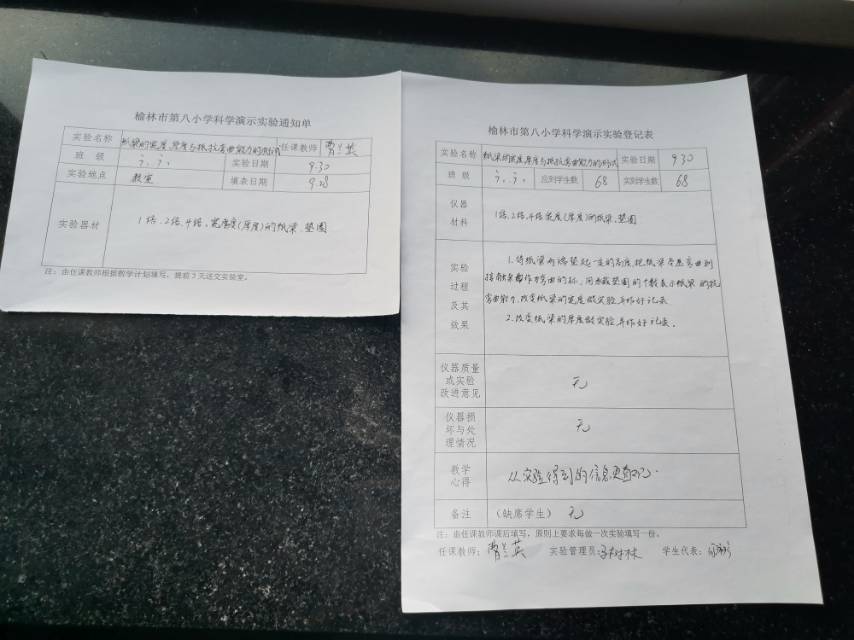 榆林市第八小学科学演示实验通知单
实验名称 纸梁的宽度、厚度与抵抗弯曲能力的测试 任课教师 曹兰英
班 级 实验日期 9.30
实验地点 教室 填表日期 9.28
实验器材 1倍、2倍、4倍、宽度(厚度)的纸梁、垫圈
注：由任课教师根据教学计划填写，提前3天送交实验室。
榆林市第八小学科学演示实验登记表
实验名称 纸梁的宽度、厚度与抵抗弯曲能力的测试 实验日期 9.30
班 级 应到学生数 68 实到学生数 68
仪器
材料
1倍、2倍、4倍宽度(厚度)的纸梁、垫圈
实验
过程
及其
效果
1.将纸梁两端垫起一定的高度,把纸梁弯曲到
作弯曲的标,用承载垫圈的个数表示纸梁的抗
弯曲能力,改变纸梁的宽度做实验,并作好记录
2.改变纸梁的厚度做实验,并作好记录。
仪器质量
或实验
改进意见
无
仪器损
坏与处
理情况
无
教学
心得
从实验得到的信息更
备注 (缺席学生) 无
注：由任课教师课后填写，原则上要求每做一次实验填写一份。
任课教师：曹兰英 实验管理员： 学生代表：